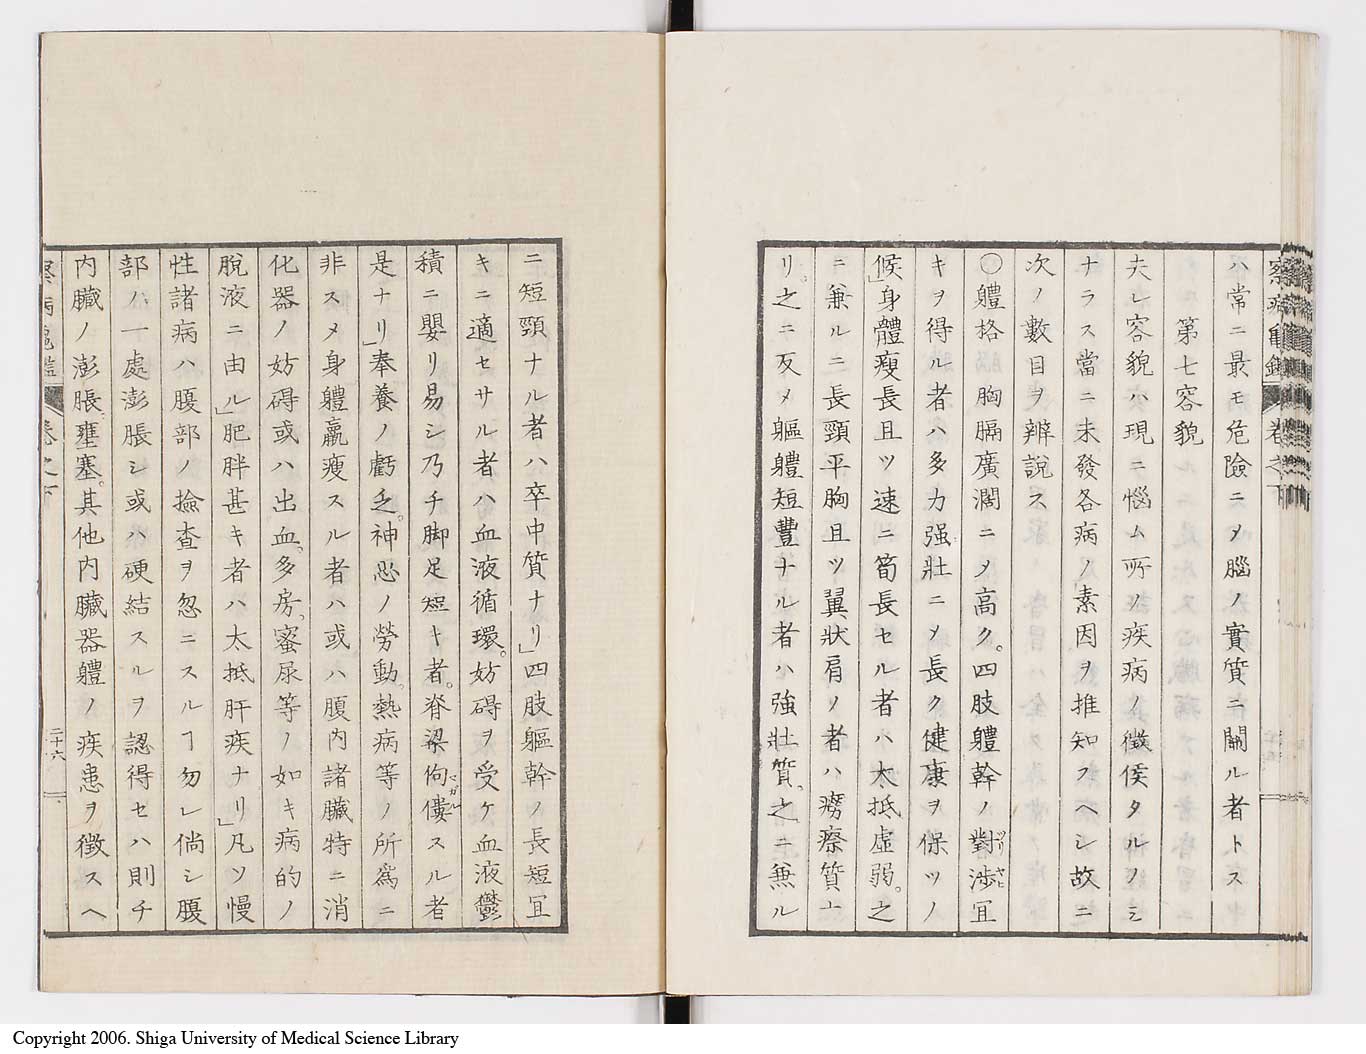 ハ常ニ最モ危險ニメ腦ノ實質ニ關ル者トス
第七容貌
夫レ容貌ハ現ニ惱ム所ノ疾病ノ徴候タルノミ
ナラス當ニ未發各病ノ素因ヲ推知スヘシ故ニ
次ノ數目ヲ辨説ス
〇軆格胸膈廣濶ニメ高ク。四肢軆幹ノ對渉宜
キヲ得ル者ハ多力强壯ニメ長ク健康ヲ保ツノ
候」身體瘦長且ツ速ニ筍長セル者ハ大抵虚弱。之
ニ兼ルニ長頸平胸且ツ翼狀肩ノ者ハ癆瘵質ナ
リ。之ニ反メ軀軆短豐ナル者ハ強壯質。之ニ兼ル
ニ短頸ナル者ハ卒中質ナリ」四肢軀幹ノ長短宜
キニ適セサル者ハ血液循環。妨碍ヲ受ケ血液鬱
積ニ嬰リ易シ乃チ脚足短キ者。脊梁佝僂スル者
是ナリ」奉養ノ虧乏。神思ノ勞動。熱病等ノ所爲ニ
非スメ身軆羸瘦スル者ハ或ハ腹内諸臟特ニ消
化器ノ妨碍或ハ出血。多房。蜜尿等ノ如キ病的ノ
脫液ニ由ル」肥胖甚キ者ハ大抵肝疾ナリ」凡ソ慢
性諸病ハ腹部ノ撿査ヲ忽ニスルヿ勿レ倘シ腹
部ハ一處澎脹シ或ハ硬結スルヲ認得セハ則チ
内臟ノ澎脹。壅塞。其他内臟器軆ノ疾患ヲ徴スヘ
察病龜鑑 卷之下
二十六
Copyright 2006. Shiga University of Medical Science Library